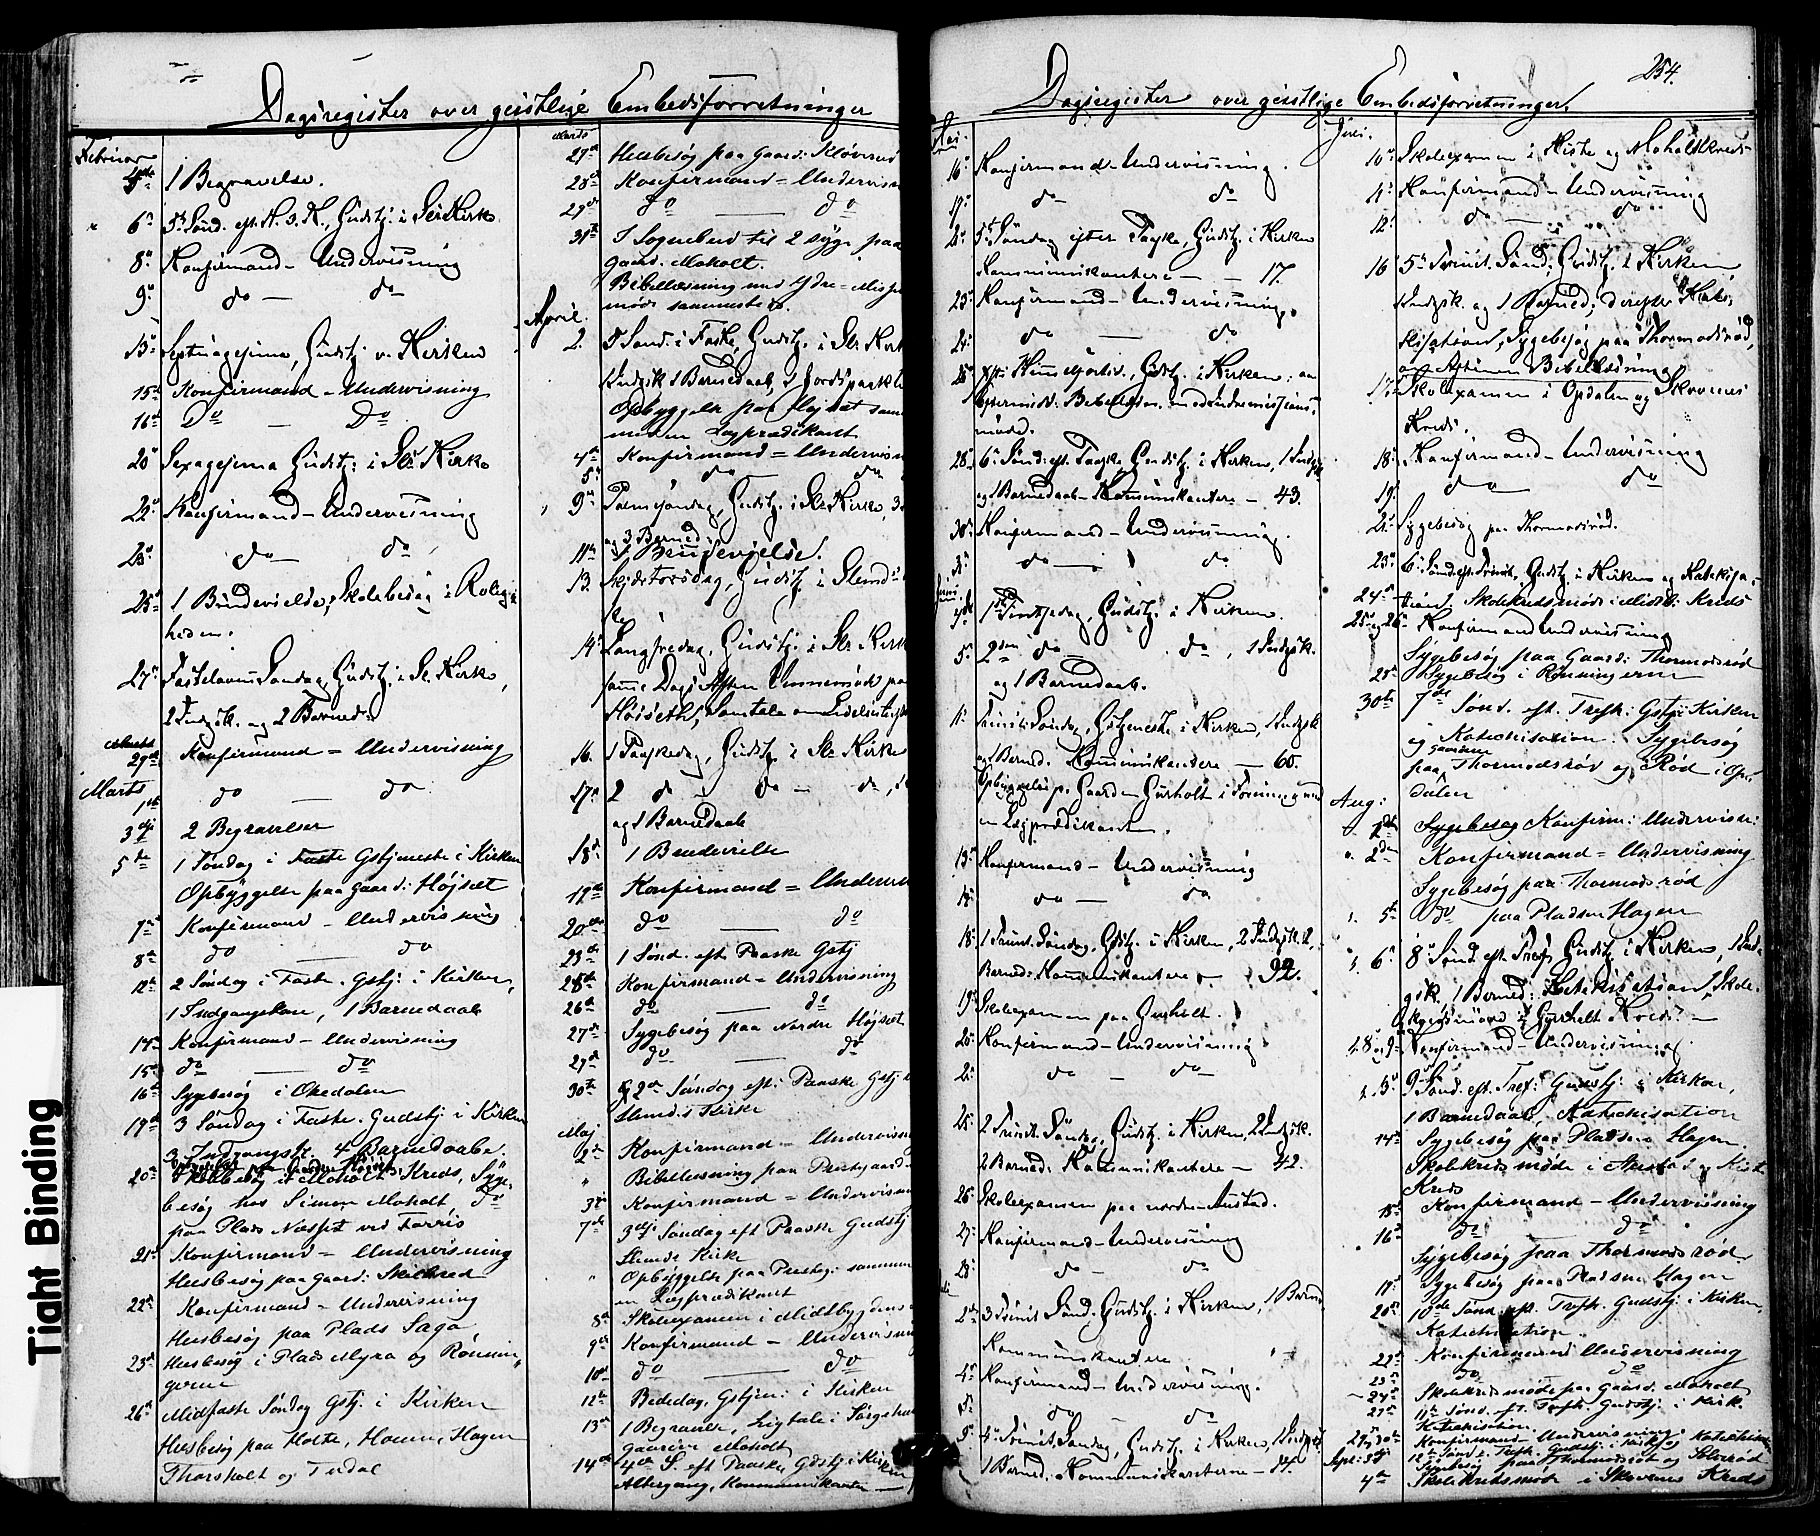 Dagsregister over geistlige Embedsforretninger
Februar
1 Begravelse.
6te 5te Sønd. eft. H. 3 K., Gudstj. i Skr Kirke
8de Konfirmand-Undervisning
9de do — do
13de Septuagesima, Gudstj. v. Kirken
15de Konfirmand-Undervisning
16de Do — Do
20de Sexagesima Gudstj. i Skr Kirke
22de Konfirmand-Undervisning
23de do — do
25de 1 Brudevielse, Skolebesøg i Rolig-
heden.
27de Fastelavns Søndag, Gudstj. i Sk. Kirke,
2 Indgsk. og 2 Barned.
29de Konfirmand = Undervisning
Marts
1ste do — do
3die 2 Begravelser
5te 1 Søndag i Faste Gstjeneste i Kirken
Opbyggelse paa Gaard: Højset
7de Konfirmand-Undervisning
8de do — do
12te 2 Søndag i Faste. Gstj. i Kirken,
1 Indgangskone, 1 Barnedaab
14de Konfirmand-Undervisning
15de do — do
16de Sygebesøg i Okedalen
19de 3 Søndag i Faste. Gudstj. i Kirken
3 Indgangsk. 4 Barnedaabe.
20de Skolebesøg i Moholt Kreds, Syge-
besøg hos Simen Moholt do
paa Plads Næsset ved Farris
21de Konfirmand = Undervisning
Husbesøg paa Gaard: Skilbred
22de Konfirmand-Undervisning
Husbesøg paa Plads Saga
23de Husbesøg i Plads Myra og Rønnin-
gerne
26de Midfaste Søndag Gstj. i Kirken
Husbesøg paa Holte, Haven, Hagen
Thorsholt og Tvedal
Marts
27de Husbesøg paa Gaard: Kløverød
28de Konfirmand = Undervisn
29de do — do
31te 1 Sognebud til 2 syge paa
Gaard. Moholt.
Bibellæsning med Ydre-Mis
møde sammesteds.
April.
2. 5 Sønd. i Faste, Gudstj. i Skr Kirk
Indgsk 1 Barnedaab, 1 Jordspaakk
Opbyggelse paa Højset sam
men m en Lægprædikant
4de Konfirmand = Undervisn
5te do do
9de Palmesøndag, Gudstj. i Skr Kirke, 3
og 3 Barned.
11te 1 Brudevielse.
13. Skjærtorsdag, Gudstj. i Slemd
14de Langfredag, Gudstj. i Skr Kirk
samme Dags Aften Vennemøde paa
Højseth, Samtale om
16. 1 Paaskedag, Gudstj. i Skr Kirke
17de 2 do — do — do,
og 1 Barnedaab
18de 1 Brudevielse
19de Konfirmand = Underv
20de do — do
23de 1 Sønd. eft Paaske Gstj
25de Konfirmand-Undervisning
26de do — do
27de Sygebesøg paa Nordre Højset
29de do — do
30te 2den Søndag eft: Paaske Gstj
Slemdals Kirke
Maj
2den Konfirmand-Undervisn
" Bibellæsning paa Præstgaard
3die Konfirmand = Undervisn
7de 3die Søndag eft Paaske Gudstj
Slemds Kirke
" Opbyggelse paa Prestg: sammen
m Lægprædikant
8de Skolexamen i Midtbygdens
9de Konfirmand-Undervisning
10de do — do
12te Bededag, Gstjen: i Kirken
13de 1 Begravelse, Ligtale i Sørgehuset
Gaarden Moholt
14de 4de S. eft Paaske, Gdstj i Kirken
Altergang, Kommunikanter —
Dagsregister over geistlige Embedsforretninger.
254.
Mai.
16de Konfirmand-Undervisning.
17de do do
21de 5te Søndag efter Paaske, Gudstj. i Kirken
Kommunikantere — 17.
23de Konfirmand-Undervisning.
24de do — do
25de Kr: Himmelfartsd., Gudstj. i Kirken; om
Eftermidd. Bibellæsn. med Indremissions-
møde.
28de 6te Sønd. eft. Paaske, Gudstj. i Kirken, 1 Indgsk
og 1 Barnedaab — Kommunikantere — 43.
30te Konfirmand-Undervisning.
31te do — do
Juni
4de 1ste Pintsedag, Gudstj. i Kirken.
5te 2den do — do, 1 Indgsk.
og 1 Barnedaab.
11te Trinit. Søndag, Gstjeneste i Kirken, 1 Indgsk
og 1 Barned. Kommunikantere — 60.
Opbyggelse p. Gaarden Gurholt i Forening med
en Lægprædikant.
13de Konfirmand-Undervisning
14de do — do
18de 1 Trinit. Søndag, Gdstj. i Kirken, 2 Indgsk. 2
Barned. Kommunikantere — 32.
19de Skolexamen paa Gurholt.
20de Konfirmand-Undervisning
21de do — do
25de 2 Trinit. Søndag, Gudstj. i Kirken, 2 Indgsk.
2 Barned. Kommunikantere — 42.
26de Skolexamen paa nordre Anstad.
27de Konfirmand-Undervisning
28de do — do
Juli
2den 3 Trinit Sønd. Gudstj. i Kirken, 1 Barned
Kommunikantere "
4de Konfirmand-Undervisning.
5te do — do
9de 4de Trinit Søndag, Gudstj. i Kirken, 1 Indgsk
1 Barned. Kommunikantere — 14.
Juli.
10de Skoleexamen i Kiste og Moholtkreds
11te Konfirmand-Undervisning
12te do — do
16de 5te Trinit. Sønd. Gudstj. i Kirken
Indgsk. og 1 Barned; derefter Kate-
kisation, Sygebesøg paa Thormodsrød,
om Aftenen Bibellæsning
17de Skolexamen i Opdalen og Skovenes
Kreds.
18de Konfirmand-Undervisning
19de do — do
21de Sygebesøg paa Thormodsrød.
23de 6te Sønd. eft. Trinit. Gudstj. i Kirken og Katekisa-
tion.
24de Skolekredsmøde i Midtb: Kreds
25de og 26de Konfirmand Undervisning
Sygebesøg paa Gaard: Thormodsrød
28de Sygebesøg i Rønningerne
30te 7de Sønd. eft. Trefk: Gstj i Kirken
og Katechisation. Sygebesøg
paa Gaardene Thormodsrød og Rød i Op-
dalen
Aug:
1ste Sygebesøg Konfirm: Undervisn:
2den Konfirmand = Undervisning
Sygebesøg paa Thormodsrød
5te do paa Pladsen Hagen
6te 8de Sønd. eft. Tref, Gudstj. i Kirken, 1 Ind-
gsk. 1 Barned. Katekisation, Skole-
kredsmøde i Gurholt Kreds —
8de og 9de Konfirmand-Undervisning.
13de 9de Sønd. eft. Tref: Gudstj. i Kirken,
1 Barnedaab, Katechisation
14de Sygebesøg paa Pladsen Hagen
Skolekredsmøde i Anstad og Kiste
Kreds
15de Konfirmand-Undervisning
16de do do
Sygebesøg paa Thormodsrød
19de Sygebesøg paa Pladsen Hagen
20de 10de Sønd. eft. Trefk. Gudstj. i Kirken,
Katechisation.
22de Konfirmand Undervisning
23de do do
24de Skolekredsmøde paa Gaard. Moholt
27de 11te Sønd. eft. Trefk Gudstj. i Kirk
Katechisation.
29de 30te Konfirmand-Undervisning
Sept: 3die 12te Sønd e. Trefk. Gudstj. i Kirk og Katechisa
Sygebesøg paa Thormodsrød og
4de Skolekredsmøde i Skovenes Kreds
Tight Binding